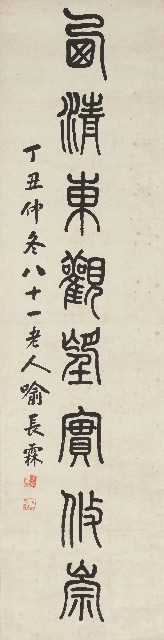 西清東觀望實攸崇
丁丑仲冬八十一老人喻長霖